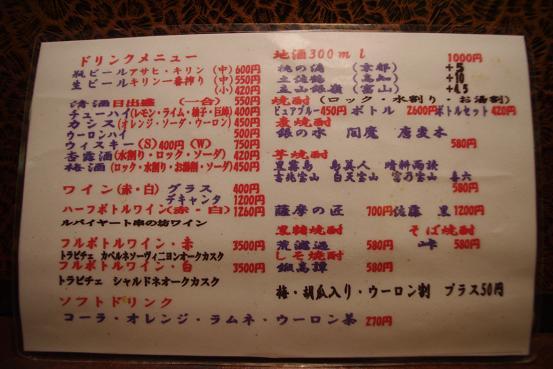 ドリンクメニュー
瓶ビール アサヒ・キリン (中) 600円
生ビール キリン一番搾り (中) 550円
(小) 420円
清酒 日出盛 (一合) 550円
チューハイ(レモン・ライム・柚子・巨峰) 400円
カシス(オレンジ・ソーダ・ウーロン) 450円
ウーロンハイ 500円
ウィスキー (S) 400円 (W) 750円
杏露酒 (水割り・ロック・ソーダ) 420円
梅酒 (ロック・水割り・お湯割・ソーダ) 450円
ワイン (赤・白) グラス 400円
デキャンタ 1200円
ハーフボトルワイン(赤・白) 1260円
ルバイヤート 丸の坊ワイン
フルボトルワイン・赤 3500円
トラピチェ カベルネソーヴィニヨンオークカスク
フルボトルワイン・白 3500円
トラピチェ シャルドネオークカスク
ソフトドリンク
コーラ・オレンジ・ラムネ・ウーロン茶 270円
地酒300ml 1000円
桃の滴 (京都) +5
土佐鶴 (高知) +10
立山銀嶺 (富山) +4.5
焼酎 (ロック・水割り・お湯割)
ピュアブルー 450円 ボトル 2600円 ボトルセット 420円
麦焼酎
銀の水 閻魔 唐変木
580円
芋焼酎
黒霧島 島美人 晴耕雨読
吉兆宝山 白天宝山 富乃宝山 喜六
580円
薩摩の匠 700円 佐藤 黒 1200円
黒糖焼酎 そば焼酎
荒濾過 580円 峠 580円
しそ焼酎
鍛高譚 580円
梅・胡瓜入り・ウーロン割 プラス50円